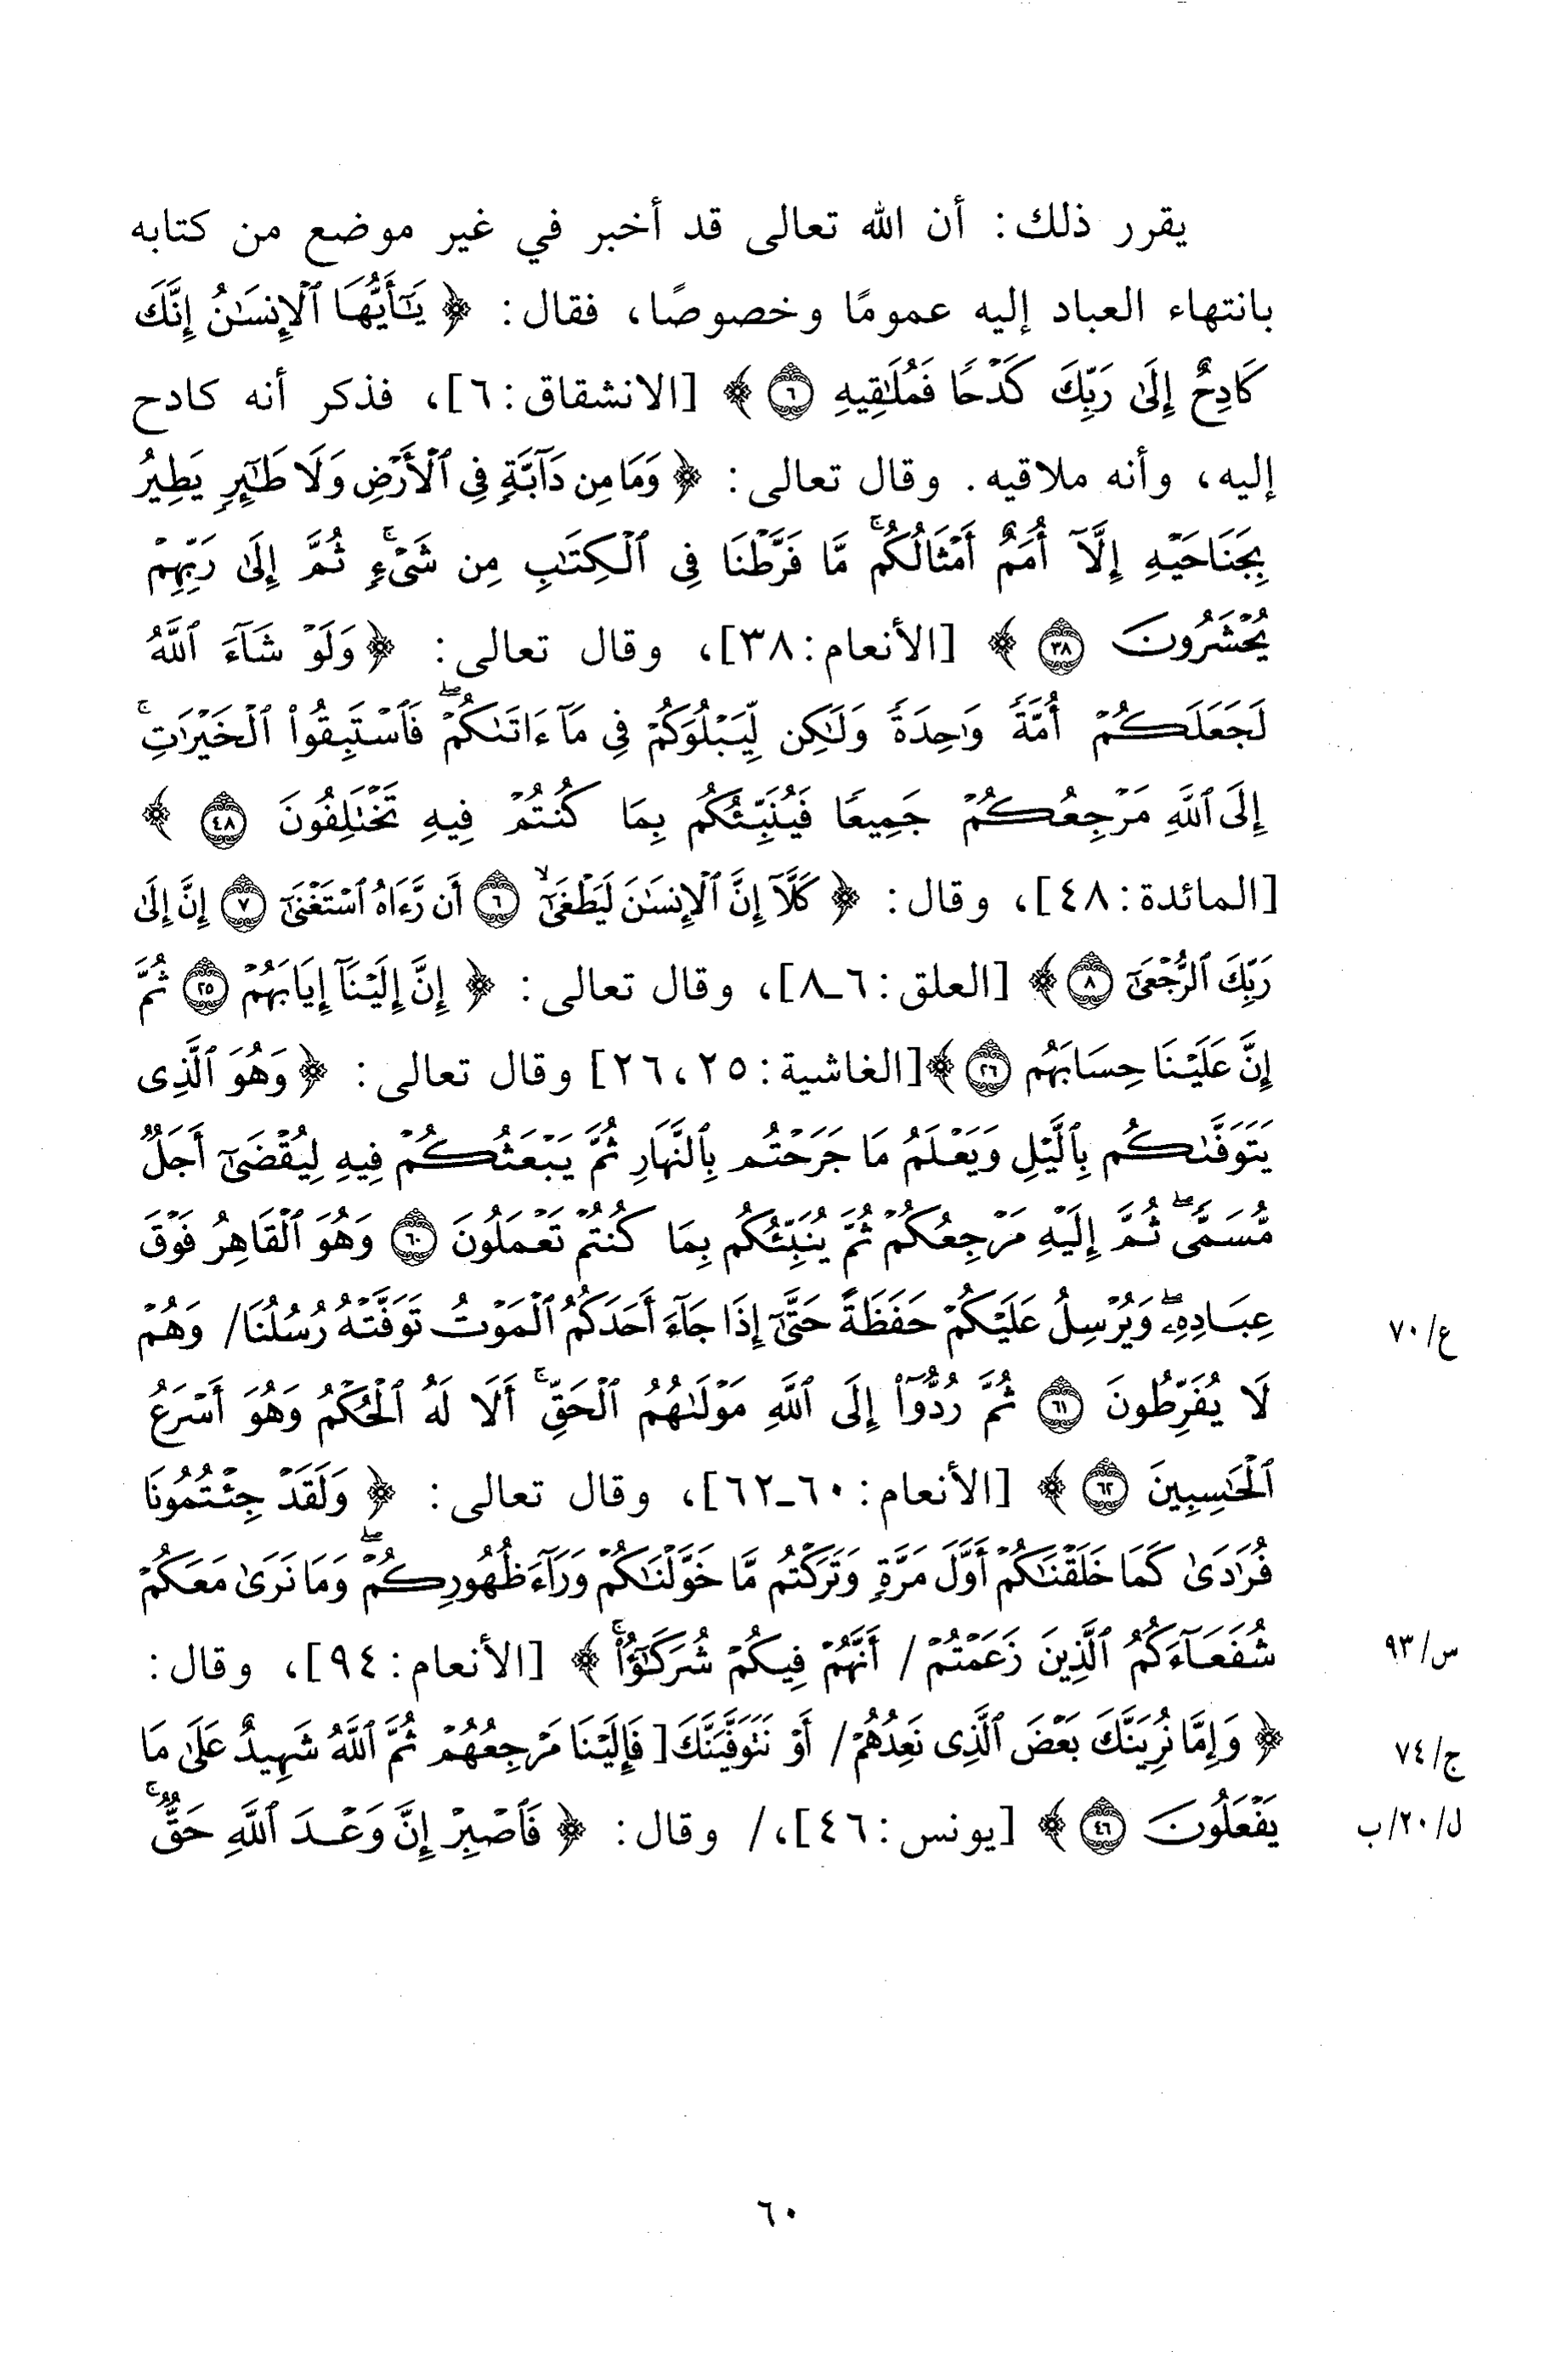 يقرر ذلك: أن الله تعالى قد أخبر في غير موضع من كتابه
بانتهاء العباد إليه عمومًا وخصوصًا، فقال: ﴿ يَٰٓأَيُّهَا ٱلْإِنسَٰنُ إِنَّكَ
كَادِحٌ إِلَىٰ رَبِّكَ كَدْحًا فَمُلَٰقِيهِ ٦ ﴾ [الانشقاق: ٦]، فذكر أنه كادح
إليه، وأنه ملاقيه. وقال تعالى: ﴿ وَمَا مِن دَآبَّةٍ فِى ٱلْأَرْضِ وَلَا طَٰٓئِرٍ يَطِيرُ
بِجَنَاحَيْهِ إِلَّآ أُمَمٌ أَمْثَالُكُم ۚ مَّا فَرَّطْنَا فِى ٱلْكِتَٰبِ مِن شَىْءٍ ۚ ثُمَّ إِلَىٰ رَبِّهِمْ
يُحْشَرُونَ ٣٨ ﴾ [الأنعام: ٣٨]، وقال تعالى: ﴿ وَلَوْ شَآءَ ٱللَّهُ
لَجَعَلَكُمْ أُمَّةً وَٰحِدَةً وَلَٰكِن لِّيَبْلُوَكُمْ فِى مَآ ءَاتَىٰكُمْ ۖ فَٱسْتَبِقُوا۟ ٱلْخَيْرَٰتِ ۚ
إِلَى ٱللَّهِ مَرْجِعُكُمْ جَمِيعًا فَيُنَبِّئُكُم بِمَا كُنتُمْ فِيهِ تَخْتَلِفُونَ ٤٨ ﴾
[المائدة: ٤٨]، وقال: ﴿ كَلَّآ إِنَّ ٱلْإِنسَٰنَ لَيَطْغَىٰٓ ۙ ٦ أَن رَّءَاهُ ٱسْتَغْنَىٰٓ ٧ إِنَّ إِلَىٰ
رَبِّكَ ٱلرُّجْعَىٰٓ ٨ ﴾ [العلق: ٦ـ٨]، وقال تعالى: ﴿ إِنَّ إِلَيْنَآ إِيَابَهُمْ ٢٥ ثُمَّ
إِنَّ عَلَيْنَا حِسَابَهُم ٢٦ ﴾ [الغاشية: ٢٥، ٢٦] وقال تعالى: ﴿ وَهُوَ ٱلَّذِى
يَتَوَفَّىٰكُم بِٱلَّيْلِ وَيَعْلَمُ مَا جَرَحْتُم بِٱلنَّهَارِ ثُمَّ يَبْعَثُكُمْ فِيهِ لِيُقْضَىٰٓ أَجَلٌ
مُّسَمًّى ۖ ثُمَّ إِلَيْهِ مَرْجِعُكُمْ ثُمَّ يُنَبِّئُكُم بِمَا كُنتُمْ تَعْمَلُونَ ٦٠ وَهُوَ ٱلْقَاهِرُ فَوْقَ
عِبَادِهِۦ ۖ وَيُرْسِلُ عَلَيْكُمْ حَفَظَةً حَتَّىٰٓ إِذَا جَآءَ أَحَدَكُمُ ٱلْمَوْتُ تَوَفَّتْهُ رُسُلُنَا/ وَهُمْ
ع/٧٠
لَا يُفَرِّطُونَ ٦١ ثُمَّ رُدُّوٓا۟ إِلَى ٱللَّهِ مَوْلَىٰهُمُ ٱلْحَقِّ ۚ أَلَا لَهُ ٱلْحُكْمُ وَهُوَ أَسْرَعُ
ٱلْحَٰسِبِينَ ٦٢ ﴾ [الأنعام: ٦٠ـ٦٢]، وقال تعالى: ﴿ وَلَقَدْ جِئْتُمُونَا
فُرَٰدَىٰ كَمَا خَلَقْنَٰكُمْ أَوَّلَ مَرَّةٍ وَتَرَكْتُم مَّا خَوَّلْنَٰكُمْ وَرَآءَ ظُهُورِكُمْ ۖ وَمَا نَرَىٰ مَعَكُمْ
شُفَعَآءَكُمُ ٱلَّذِينَ زَعَمْتُمْ / أَنَّهُمْ فِيكُمْ شُرَكَٰٓؤُا۟ ۚ ﴾ [الأنعام: ٩٤]، وقال:
س/٩٣
﴿ وَإِمَّا نُرِيَنَّكَ بَعْضَ ٱلَّذِى نَعِدُهُمْ/ أَوْ نَتَوَفَّيَنَّكَ [ فَإِلَيْنَا مَرْجِعُهُمْ ثُمَّ ٱللَّهُ شَهِيدٌ عَلَىٰ مَا
ج/٧٤
يَفْعَلُونَ ٤٦ ﴾ [يونس: ٤٦]،/ وقال: ﴿ فَٱصْبِرْ إِنَّ وَعْدَ ٱللَّهِ حَقٌّ ۚ
ل/٢٠/ب
٦٠